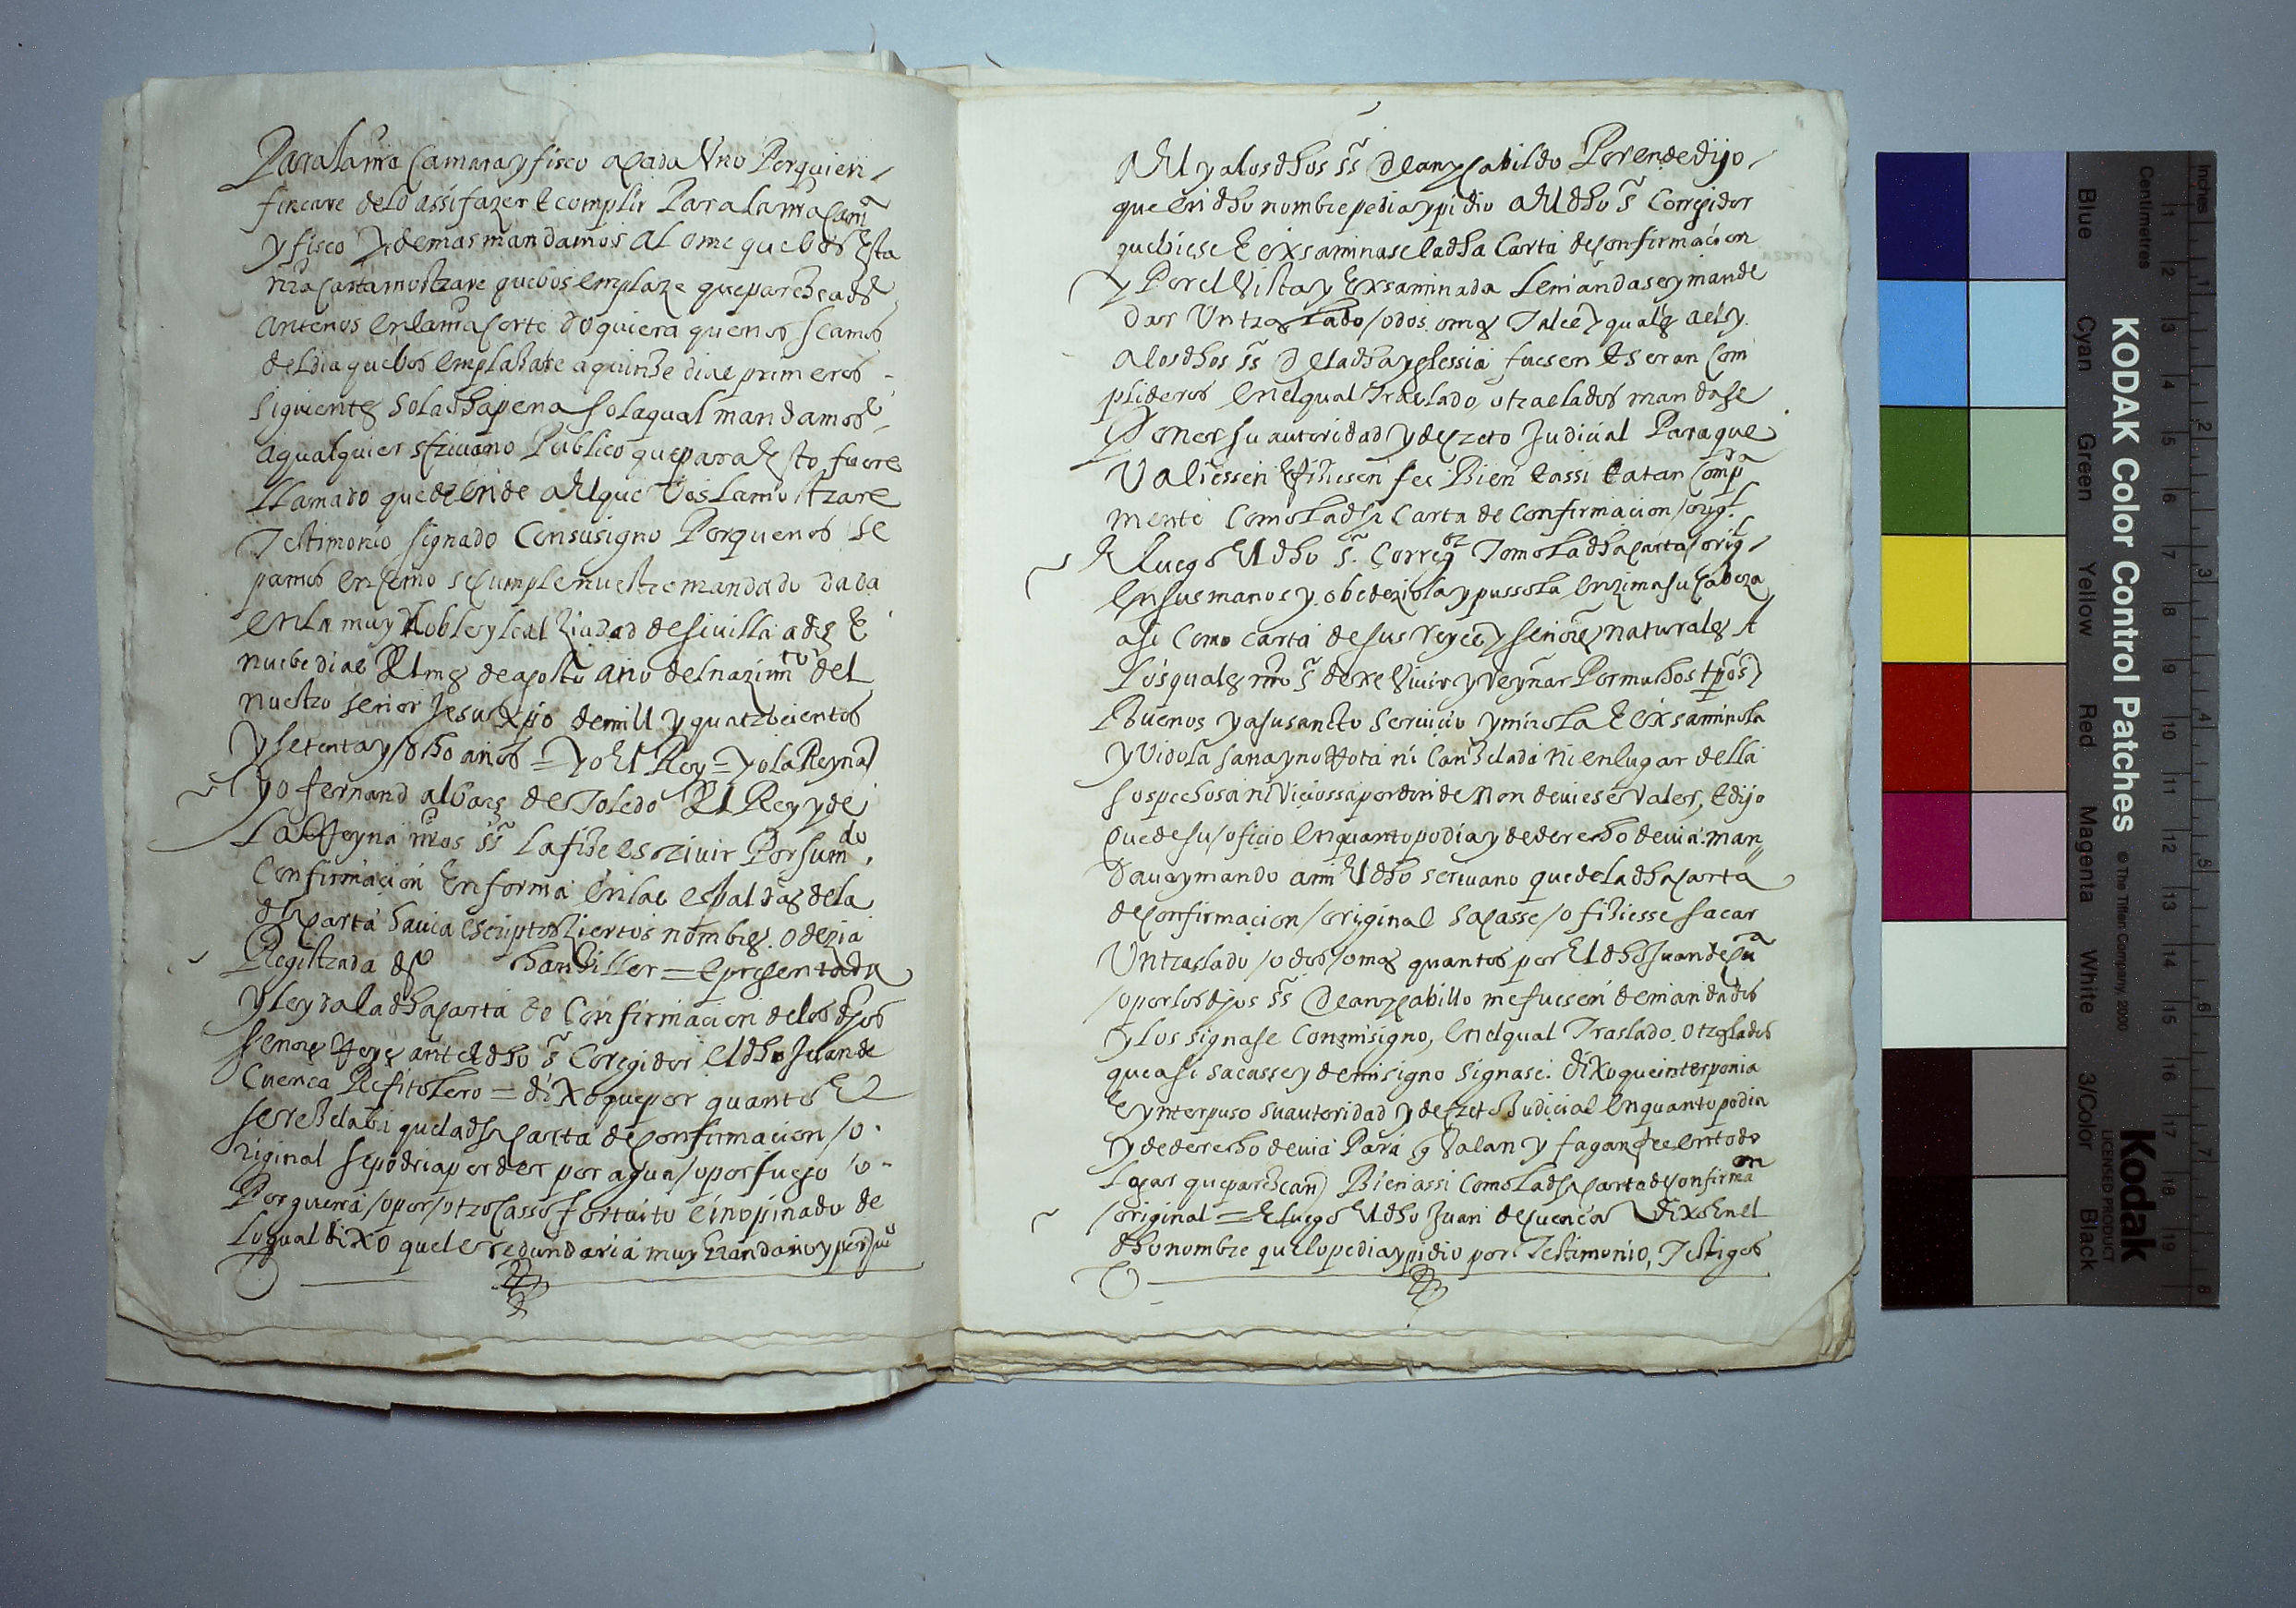 Para la nr̃a Camara y fisco a cada Vno Por quien
fincare de lo assi fazer E complir Para la nr̃a Cam̃
y fisco y demas mandamos al ome que bos Esta
nr̃a Carta mostrare que bos emplaze que parezcades
ante nos en la nr̃a Corte do quiera que nos seamos
del dia que bos emplazare a quinze dias primeros
siguientes so la dha pena so la qual mandamos
a qualquier scrivano Publico que para Esto fuere
llamado que de Ende al que Vos la mostrare
Testimonio signado Con su signo Por que nos se
pamos en como se cumple nuestro mandado dada
en la muy Noble y leal ziudad de sivilla a diez E
nuebe dias del mes de agosto año del nazimto del
nuestro señor Jesu Xpo de mill y quatrocientos
y setenta y ocho años = Yo El Rey = Yo la Reyna
Yo fernand albarez de Toledo del Rey y de
La Reyna nr̃os ss̃ la fize escrivir Por su mdo
Confirmacion En forma En las espaldas de la
dha carta havia escriptos ziertos nombres. o dezia
Registrada chanziller = e presentada
y leyda la dha carta de Confirmacion de los dhos
señores Reyes ante el dho s̃ Coregidor el dho Juan de
Cuenca Refitolero = dixo que por quanto El
se rezelaba que la dha carta de confirmacion / o
riginal se podria perder por agua / o por fuego / o
Por guerra / o por / otro casso fortuito e inopinado de
lo qual dixo que les redundaria muy gran daño y perjuo
al y a los dhos ss̃ Dean y cabildo Por ende dijo
que En dho nombre pedia y pidio al dho s̃ Corregidor
que biese E exsaminase la dha Carta de confirmacion
y Por el Vista y Exsaminada le mandase y mande
dar Vn traslado / o dos. o mas Tales y quales a el y
a los dhos ss̃ De la dha yglessia fuesen E seran Com
plideros en el qual Traslado, o traslados mandase
Poner su autoridad y decreto Judicial Para que
Valiessen E fiziesen fee Bien E assi E a tan Comp̃
mente Como la dha Carta de Confirmacion / orig.l
E luego El dho s̃. Corregor Tomo la dha carta / origl
en sus manos y obedeziola y pussola enzima su cabeza
asi Como carta de sus reyes y señores naturales A
los quales nr̃o s̃ dexe Vivir y reynar Por muchos tp̃os
Buenos y a su sancto servicio y mirola E exsaminola
y Vidola sana y no Rota ni Canzelada ni en lugar della
sospechosa ni Viciossa por donde non deviese Valer, E dijo
que de su / oficio En quanto podia y de derecho devia man
dava y mando a mi El dho scrivano que de la dha carta
de confirmacion / original sacasse / o fiziesse sacar
Vn traslado / o dos / o mas quantos por El dho Juan de Cũa
/ o por los dhos ss̃ Dean y cabillo me fuesen demandados
y los signase Con mi signo, en el qual Traslado. o traslados
que asi sacasse y de mi signo signase. dixo que interponia
e ynterpuso su autoridad y decreto Judicial En quanto podia
y de derecho devia Para q Valan y fagan fee en todo
Logar que parezcan Bien assi Como la dha carta de confirmaon
/ original = E luego El dho Juan de cuenca dixo En el
dho nombre que lo pedia y pidio por Testimonio, Testigos
KODAK Color Control Patches
© The Tiffen Company, 2000
Kodak
LICENSED PRODUCT
Inches
Centimetres
Blue
Cyan
Green
Yellow
Red
Magenta
White
3/Color
Black
1 2 3 4 5 6 7 8
1 2 3 4 5 6 7 8 9 10 11 12 13 14 15 16 17 18 19